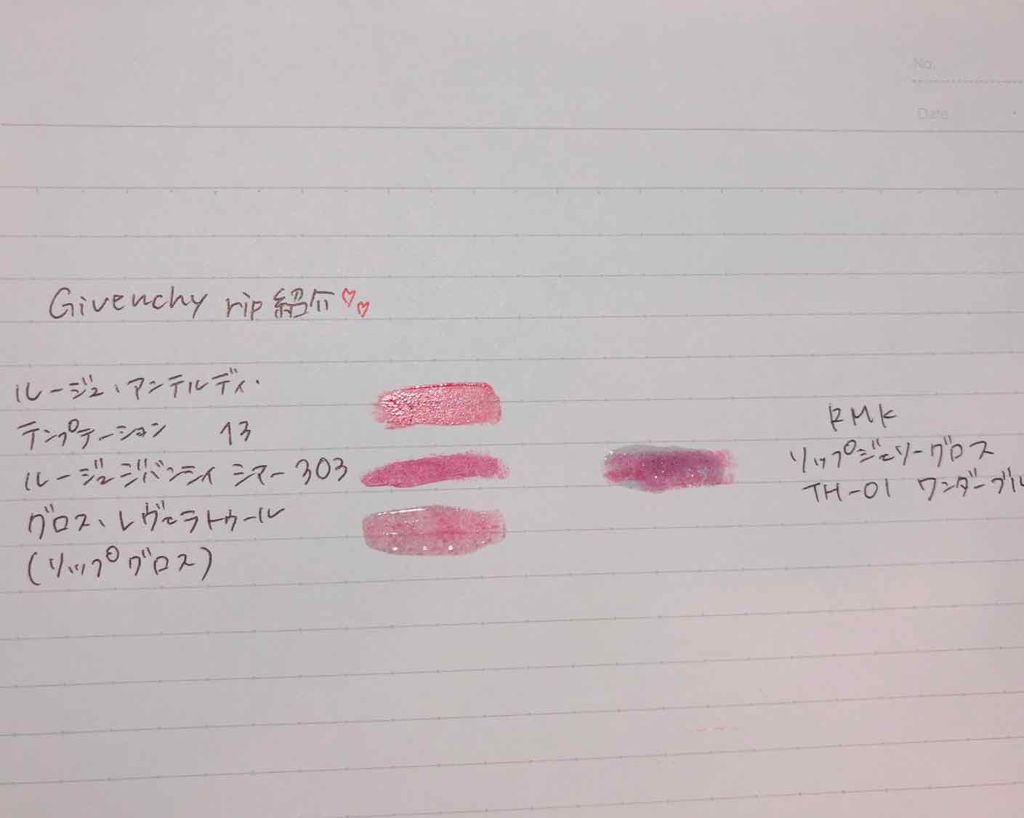 No.
Date
Givenchy rip 紹介♡♡
ルージュ・アンテルディ・
テンプテーション 13
ルージュジバンシィ シマー303
グロス・レヴェラトゥール
(リップグロス)
RMK
リップジェリーグロス
TH-01 ワンダーブル